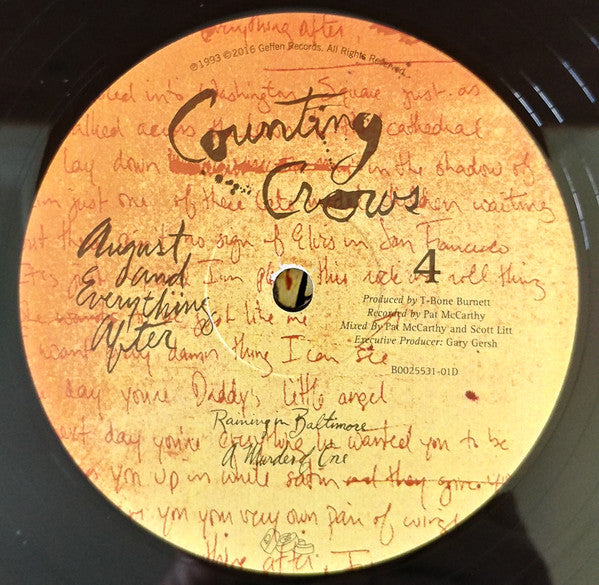 everything after
℗1993 ©2016 Geffen Records. All Rights Reserved.
into Washington Square just as
walked across the cathedral
Counting
lay down in the shadow of
Crows
just one of these waiting
August
and
Everything
After
no sign of Elvis in San Francisco
this rock and roll thing
4
Produced by T-Bone Burnett
Recorded by Pat McCarthy
Mixed By Pat McCarthy and Scott Litt
Executive Producer: Gary Gersh
like me
want every damn thing I can see
B0025531-01D
day you're Daddy's little angel
Raining in Baltimore
day you're everything he wanted you to be
A Murder of One
you up in white satin and they give
you your very own pair of wings
after